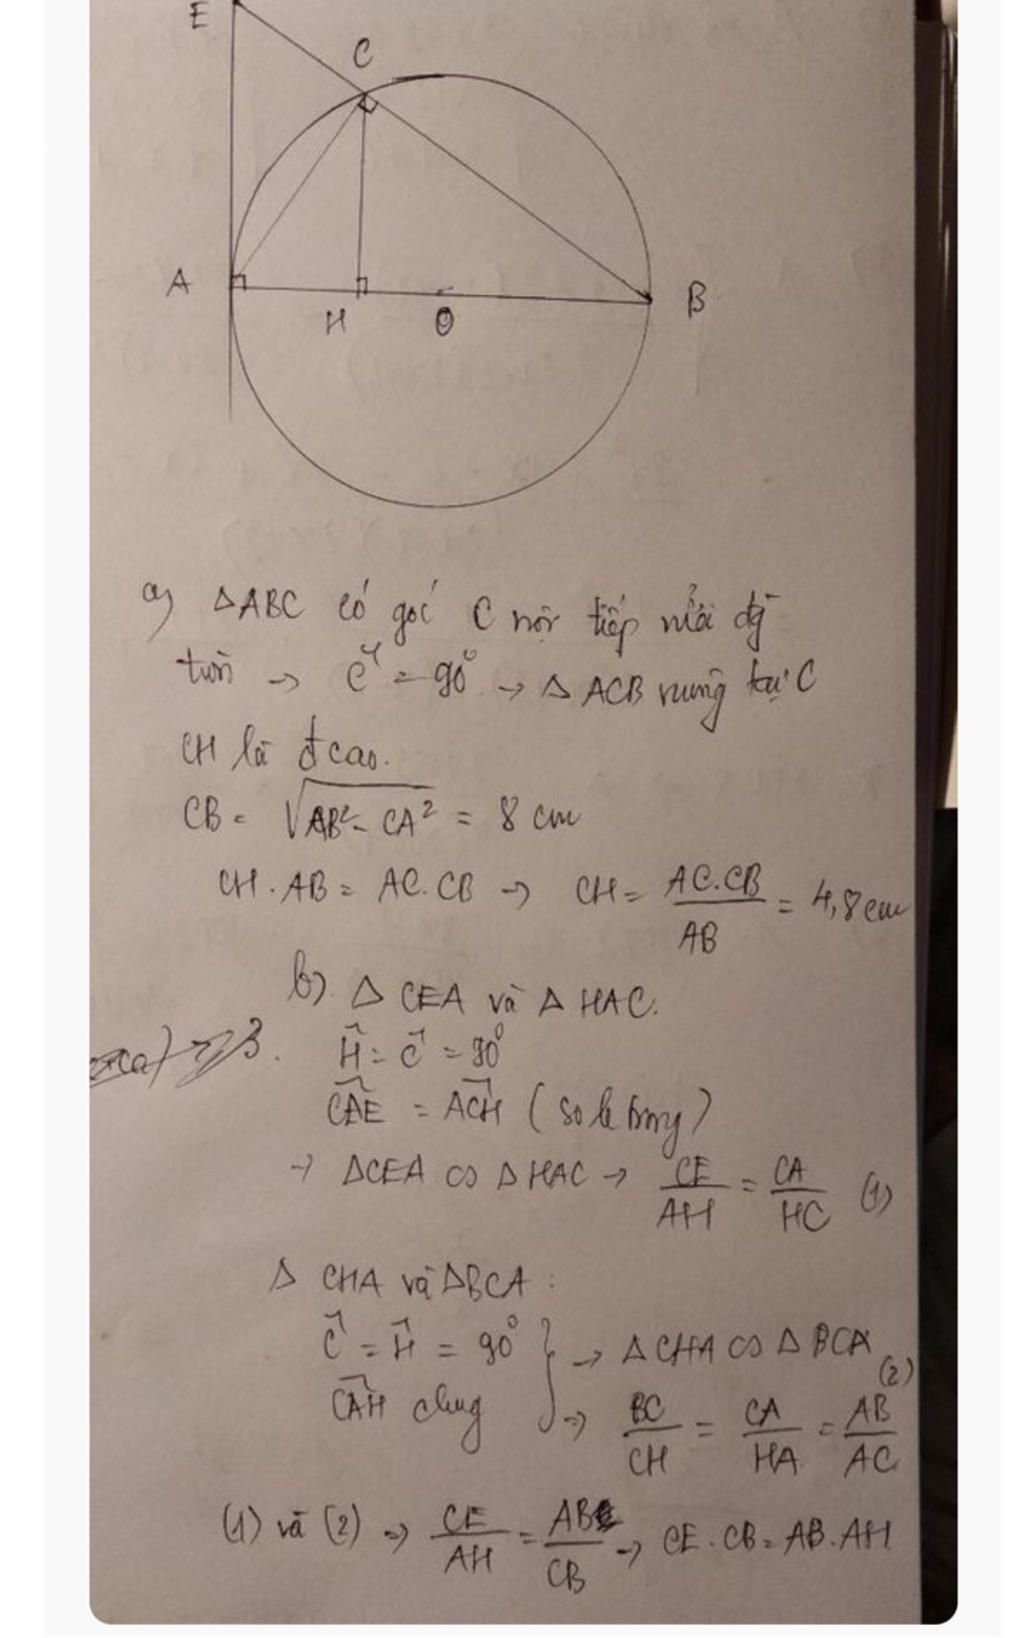 E
C
A
H
O
B
a) ΔABC có góc C nội tiếp nửa đg
tròn → Ĉ = 90° → Δ ACB vuông tại C
CH là đ cao.
CB = √(AB² - CA²) = 8 cm
CH . AB = AC . CB → CH = AC.CB / AB = 4,8 cm
b). Δ CEA và Δ HAC.
Ĥ = Ĉ = 90°
CAE = ACH (so le trong)
→ ΔCEA ∽ Δ HAC → CE/AH = CA/HC (1)
Δ CHA và ΔBCA :
Ĉ = Ĥ = 90° } → Δ CHA ∽ Δ BCA (2)
CAH chung → BC/CH = CA/HA = AB/AC
(1) và (2) → CE/AH = AB/CB → CE . CB = AB . AH